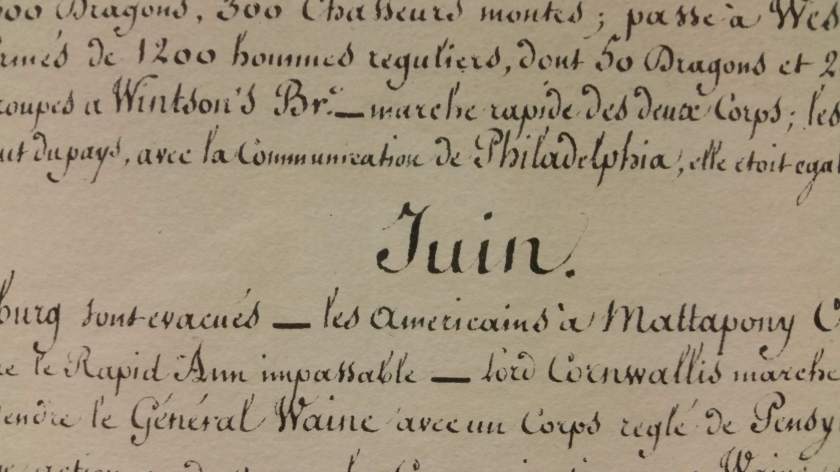 00 Dragons, 300 Chasseurs montés; passe à Wes
rmés de 1200 hommes reguliers, dont 50 Dragons et 2
roupes a Wintson's Br.e — marche rapide des deux Corps; les
ut du pays, avec la Communication de Philadelphia, elle etoit egal
Juin.
burg sont evacués — les americains à Mattapony C
re le Rapid Ann impassable — Lord Cornwallis marche
endre le Général Waine avec un Corps reglé de Pensy